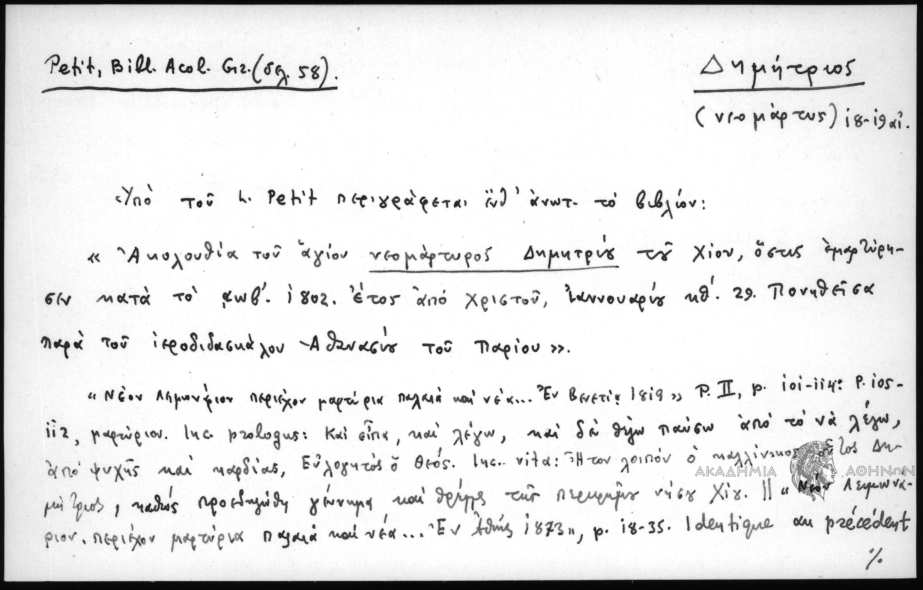 Petit, Bibl. Acol. Gr. (σελ. 58).
Δημήτριος
(νεομάρτυς) 18-19 αἰ.
Ὑπὸ τοῦ L. Petit περιγράφεται ἔνθ' ἀνωτ. τὸ βιβλίον:
« Ἀκολουθία τοῦ ἁγίου νεομάρτυρος Δημητρίου τοῦ Χίου, ὅστις ἐμαρτύρη-
σεν κατὰ τὸ ͵αωβʹ. 1802. ἔτος ἀπὸ Χριστοῦ, Ἰαννουαρίου κθʹ. 29. Πονηθεῖσα
παρὰ τοῦ ἱεροδιδασκάλου Ἀθανασίου τοῦ Παρίου ».
« Νέον Λειμωνάριον περιέχον μαρτύρια παλαιὰ καὶ νέα... Ἐν Βενετίᾳ 1819 » P. II, p. 101-114: P. 105-
112, μαρτύριον. Inc. prologus: Καὶ εἶπα, καὶ λέγω, καὶ δὲν θέλω παύσω ἀπὸ τὸ νὰ λέγω,
ἀπὸ ψυχῆς καὶ καρδίας, Εὐλογητὸς ὁ Θεός. Inc. vita: Ἦτον λοιπὸν ὁ καλλίνικος οὗτος Δη-
μήτριος, καθὼς προεδηλώθη γέννημα καὶ θρέμμα τῆς περιφήμου νήσου Χίου. || « Νέον Λειμωνά-
ριον. περιέχον μαρτύρια παλαιὰ καὶ νέα... Ἐν Ἀθήναις 1873 », p. 18-35. Identique au précédent
%
ΑΚΑΔΗΜΙΑ ΑΘΗΝΩΝ